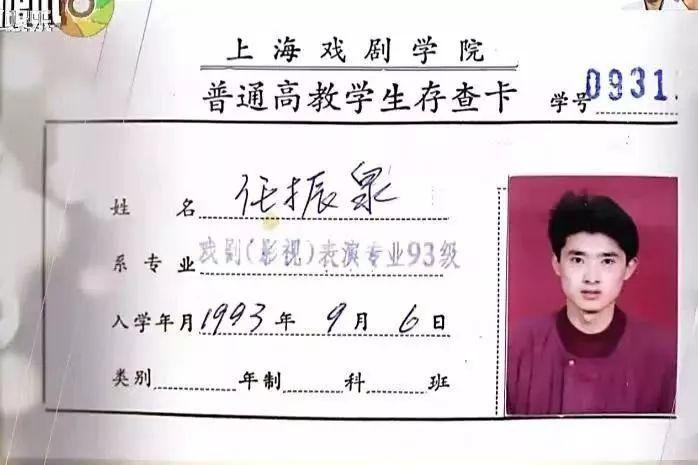 上海戏剧学院
普通高教学生存查卡 学号 0931
姓名 任振泉
系专业 戏剧(影视)表演专业93级
入学年月 1993年9月6日
类别 年制 科 班